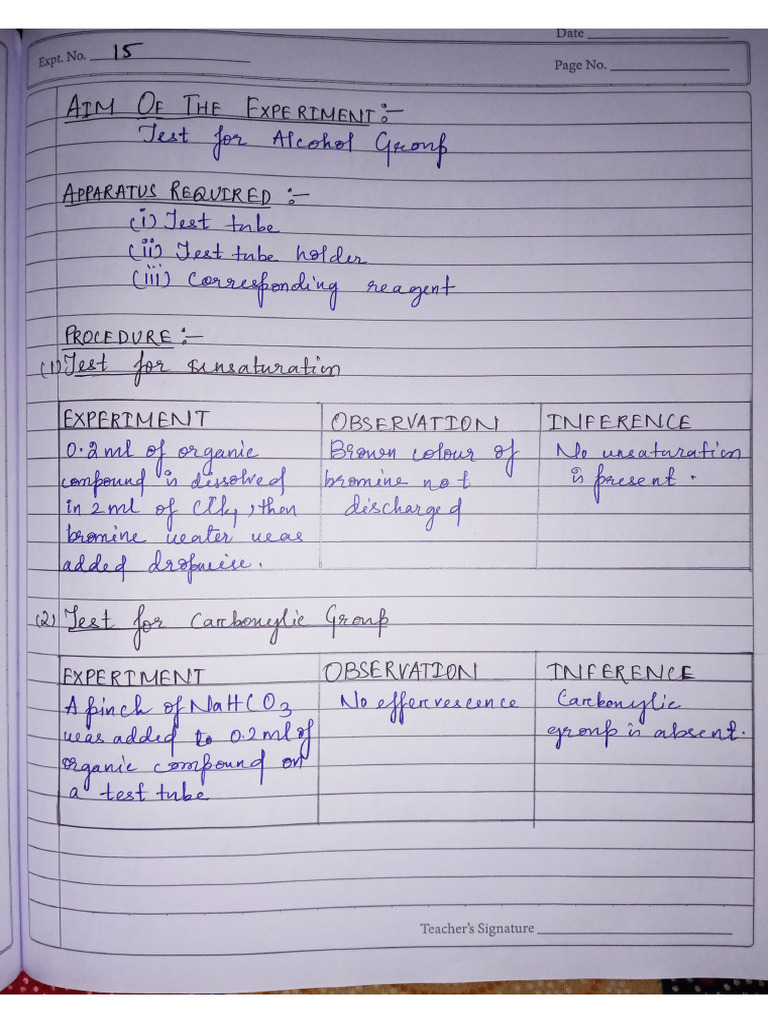 Date
Expt. No. 15
Page No.
AIM OF THE EXPERIMENT:-
Test for Alcohol Group
APPARATUS REQUIRED :-
(i) Test tube
(ii) Test tube holder
(iii) Corresponding reagent
PROCEDURE :-
(1) Test for unsaturation
EXPERIMENT OBSERVATION INFERENCE
0.2ml of organic Brown colour of No unsaturation
compound is dissolved bromine not is present.
in 2 ml of CCl4, then discharged
bromine water was
added dropwise.
(2) Test for Carboxylic Group
EXPERIMENT OBSERVATION INFERENCE
A pinch of NaHCO3 No effervescence Carboxylic
was added to 0.2ml of group is absent.
organic compound on
a test tube
Teacher's Signature